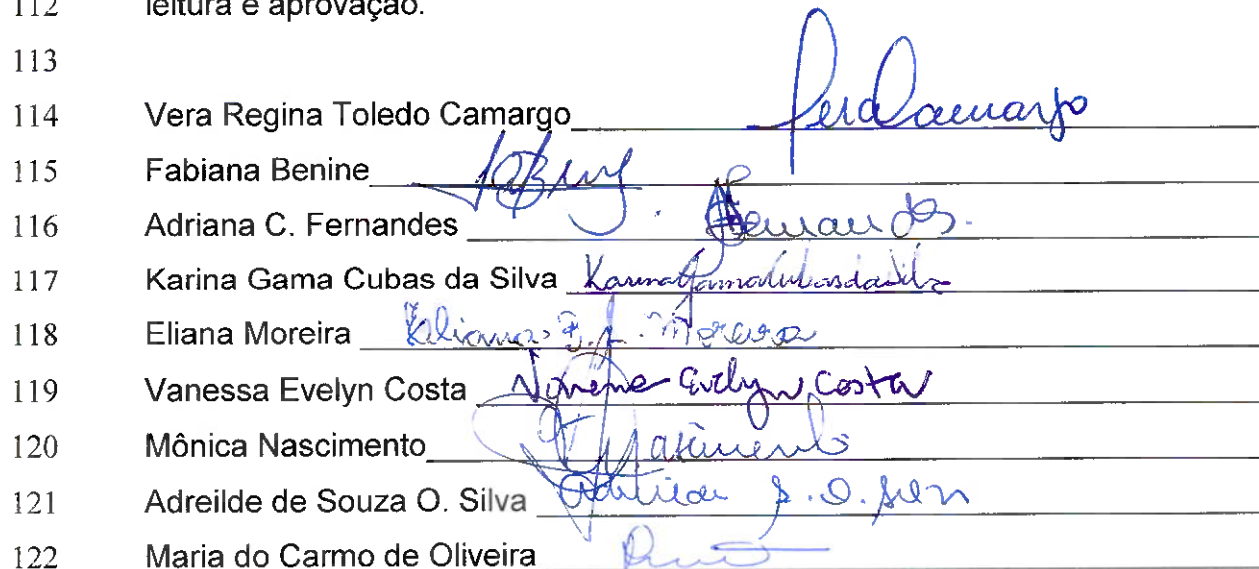 112 leitura e aprovação.
113
114 Vera Regina Toledo Camargo VeraCamargo
115 Fabiana Benine
116 Adriana C. Fernandes Fernandes.
117 Karina Gama Cubas da Silva KarinaGamaCubasdaSilva
118 Eliana Moreira Eliana Moreira
119 Vanessa Evelyn Costa Vanessa Evelyn Costa
120 Mônica Nascimento Nascimento
121 Adreilde de Souza O. Silva Adreilde S. O. Silva
122 Maria do Carmo de Oliveira